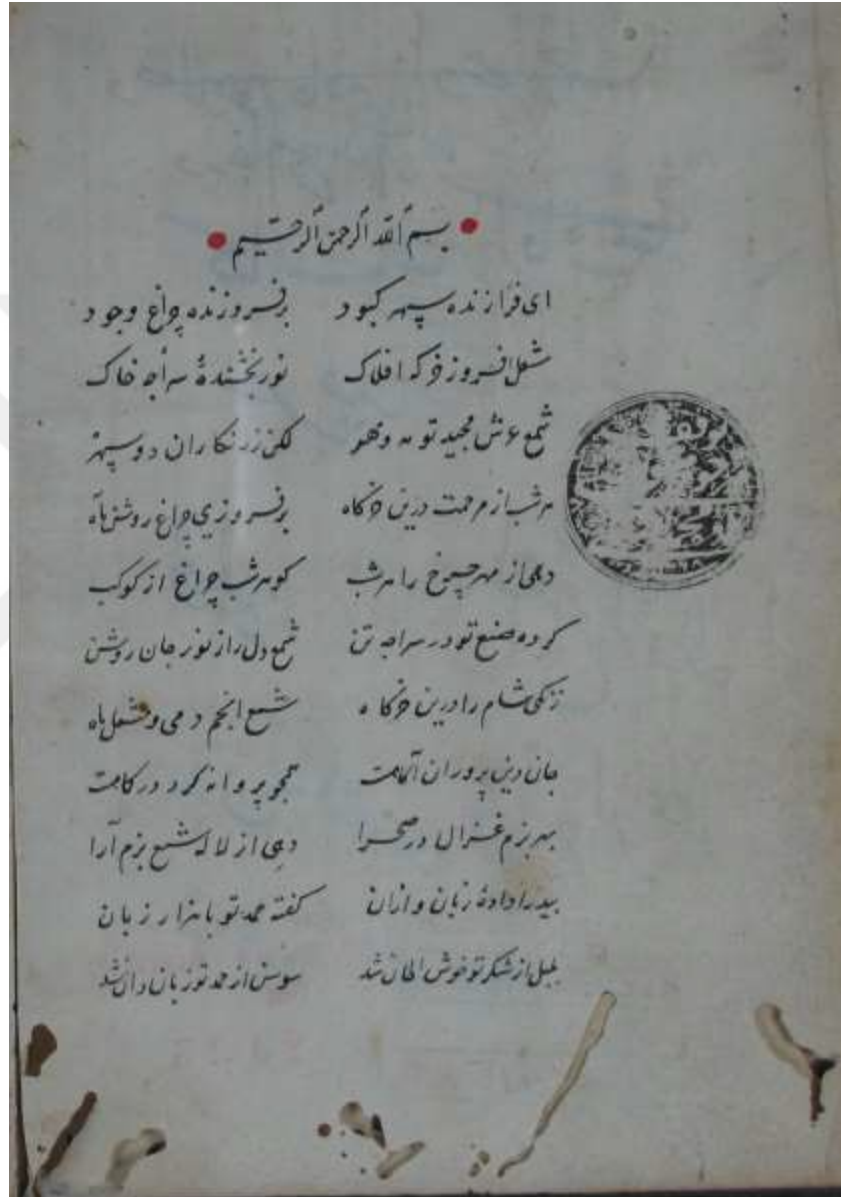 بسم الله الرحمن الرحیم
ای فرازنده سپهر کبود برفروزنده چراغ وجود
شعل افروز خرکه افلاک نور بخشندهٔ سراچه خاک
شمع عرش مجید تو مه و مهر لکن زرنکاران دو سپهر
هر شب از مرحمت درین خرکاه برفروزی چراغ روشن ماه
دهی از مهر چرخ را هر شب کوهر شب چراغ از کوکب
کرده صنع تو در سراچه تن شمع دل را ز نور جان روشن
زنکی شام را درین خرکاه شمع انجم دهی و مشعل ماه
جان دین پروران همچو پروانه کرد در کاهت
بهر بزم غزال در صحرا دهی از لاله شمع بزم آرا
بید را دادهٔ زبان و ازان کفته حمد تو با هزار زبان
بلبل از شکر تو خوش الحان شد سوسن از حمد تو زبان دان شد